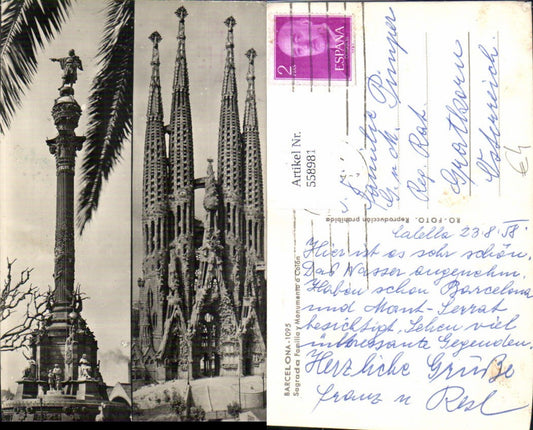 2
PTAS
ESPAÑA
Artikel Nr.
558981
Familie
G. u. M. Pumper
Reg. Rat.
Gratkorn
Österreich
RO-FOTO. Reproducción prohibida
BARCELONA-1095
Sagrada Familia y Monumento a Colón
Calella 23.8.58
Hier ist es sehr schön.
Das Wasser angenehm.
Haben schon Barcelona
und Mont-Serrat
besichtigt. Sehen viel
interessante Gegenden.
Herzliche Grüße
Franz u Resl